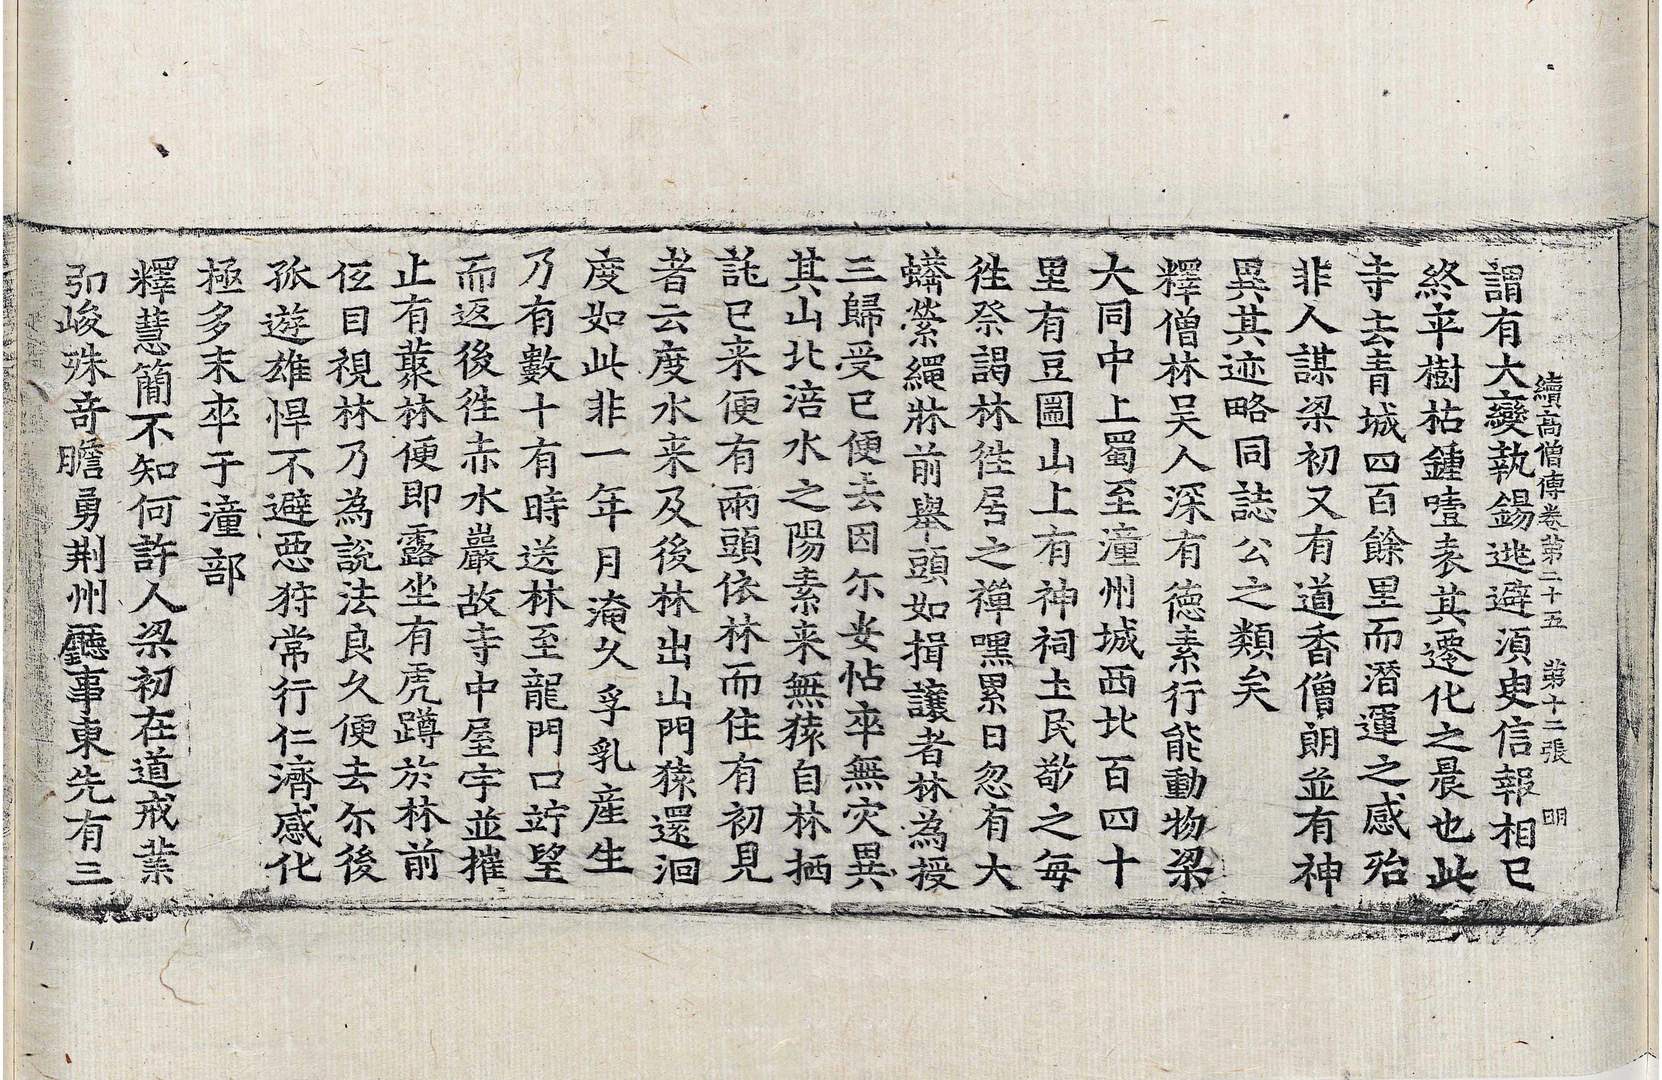 續高僧傳卷第二十五　第十二張　明
謂有大變執錫逃避湏臾信報相已
終平樹枯鍾噎表其遷化之晨也此
寺去青城四百餘里而潛運之感殆
非人謀梁初又有道香僧朗並有神
異其迹略同誌公之類矣
釋僧林吴人深有德素行能動物梁
大同中上蜀至潼州城西北百四十
里有豆圌山上有神祠土民敬之每
徃祭謁林徃居之禪嘿累日忽有大
蟒縈繩牀前舉頭如揖讓者林為授
三歸受已便去因尓安帖卒無灾異
其山北涪水之陽素来無猿自林栖
託已来便有兩頭依林而住有初見
者云度水来及後林出山門猿還洄
度如此非一年月淹久孚乳産生
乃有數十有時送林至龍門口竚望
而返後徃赤水巖故寺中屋宇並摧
止有藂林便即露坐有虎蹲於林前
伭目視林乃為說法良久便去尓後
孤遊雄悍不避惡狩常行仁濟感化
極多末卒于潼部
釋慧簡不知何許人梁初在道戒業
弘峻殊奇瞻勇荆州廳事東先有三